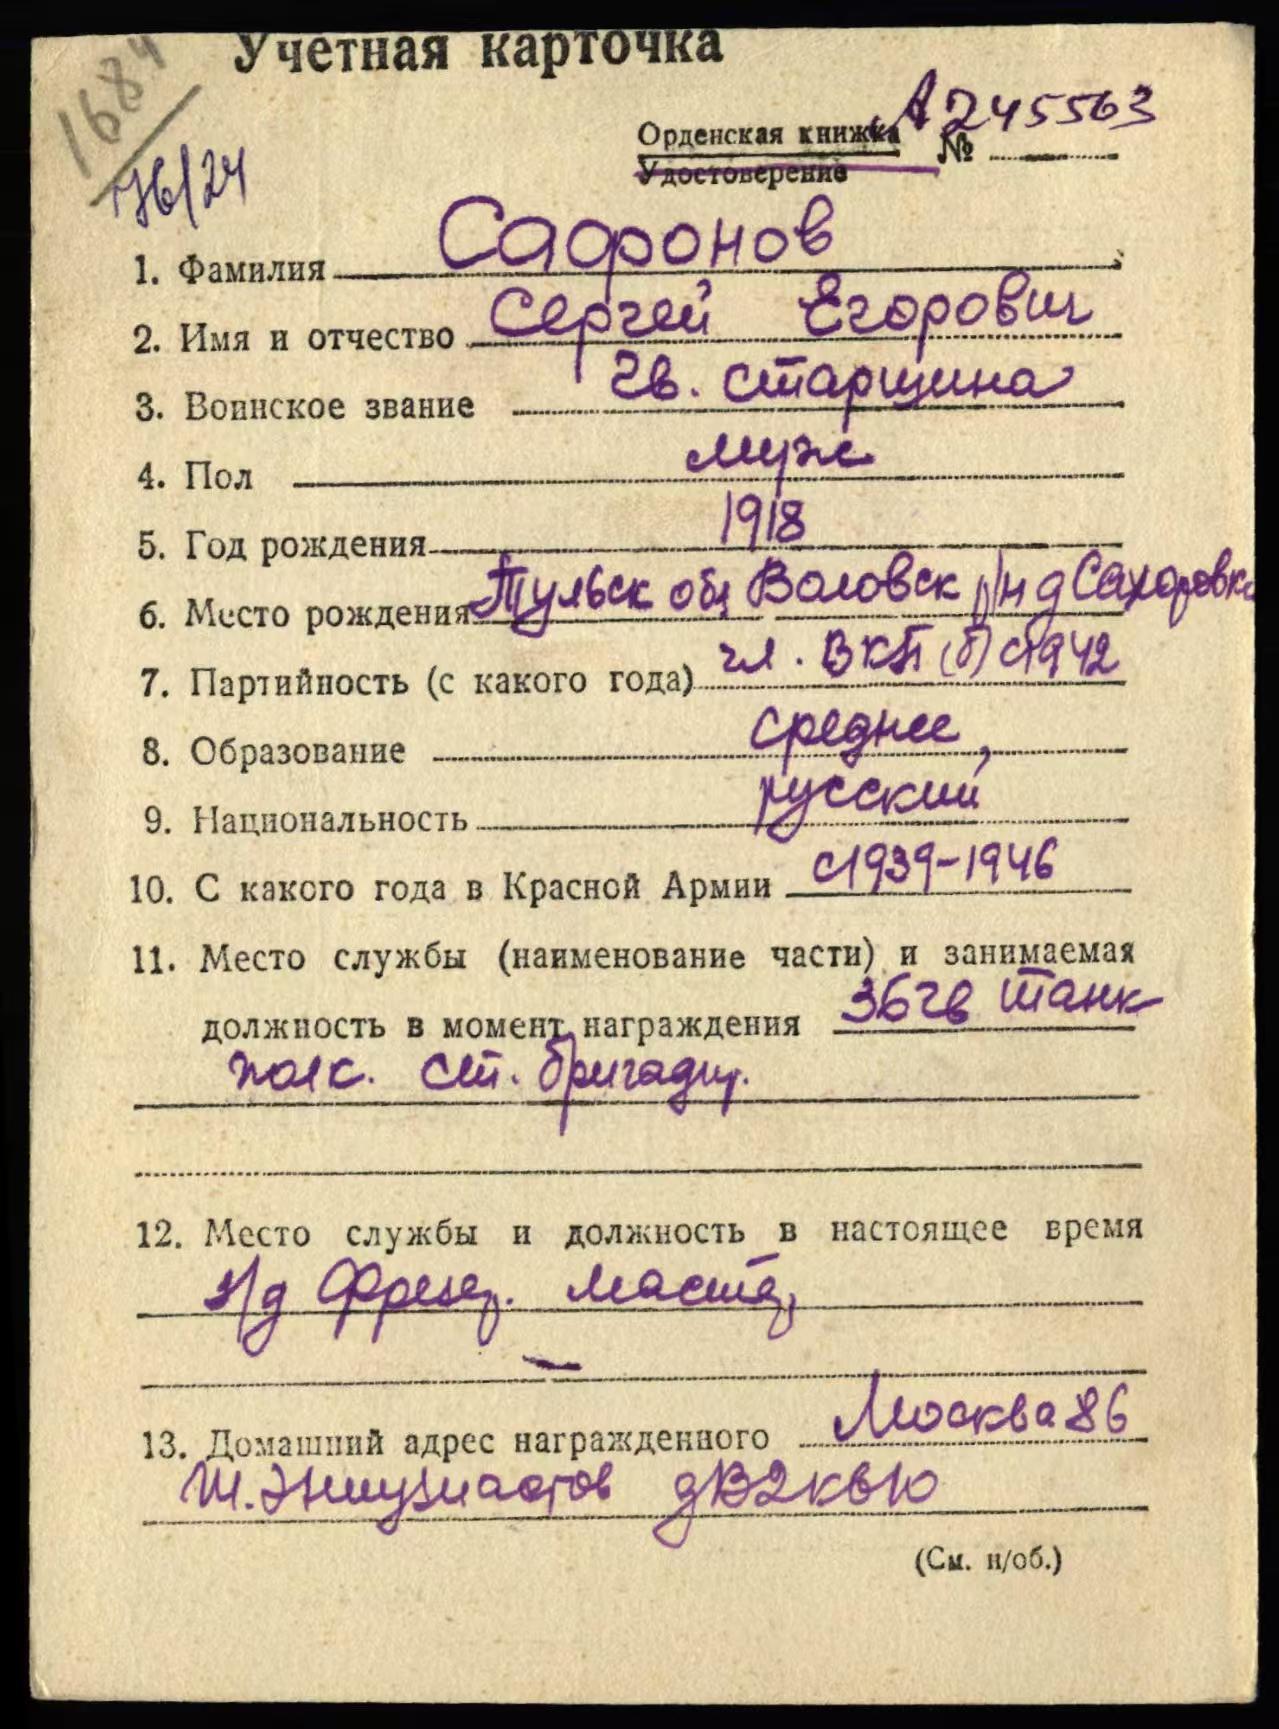 Учетная карточка
1684
76/24
А 245563
Орденская книжка №
Удостоверение
1. Фамилия Сафонов
2. Имя и отчество Сергей Егорович
3. Воинское звание Гв. старшина
4. Пол муж
5. Год рождения 1918
6. Место рождения Тульск обл Воловск р/н д Сахоровка
7. Партийность (с какого года) чл. ВКП(б) с 1942
8. Образование среднее,
9. Национальность русский
10. С какого года в Красной Армии с 1939-1946
11. Место службы (наименование части) и занимаемая
должность в момент награждения 36 гв танк
полк. ст. бригадир.
12. Место службы и должность в настоящее время
з/д Фрезер. мастер
13. Домашний адрес награжденного Москва 86
Ш. Энтузиастов
(См. н/об.)